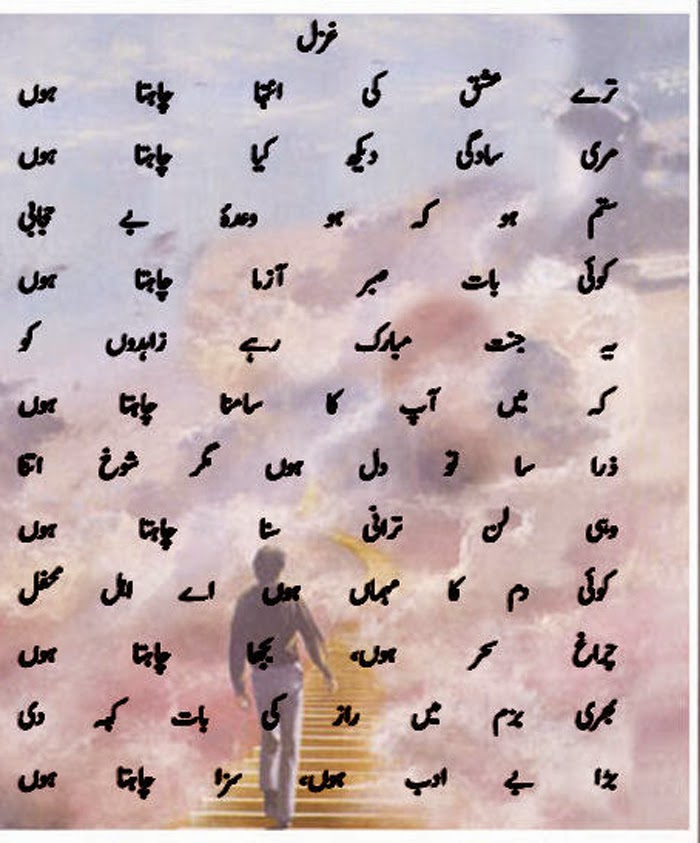 غزل
ترے عشق کی انتہا چاہتا ہوں
مری سادگی دیکھ کیا چاہتا ہوں
ستم ہو کہ ہو وعدۂ بے حجابی
کوئی بات صبر آزما چاہتا ہوں
یہ جنت مبارک رہے زاہدوں کو
کہ میں آپ کا سامنا چاہتا ہوں
ذرا سا تو دل ہوں مگر شوخ اتنا
وہی لن ترانی سنا چاہتا ہوں
کوئی دم کا مہماں ہوں اے اہل محفل
چراغ سحر ہوں، بجھا چاہتا ہوں
بھری بزم میں راز کی بات کہہ دی
بڑا بے ادب ہوں، سزا چاہتا ہوں